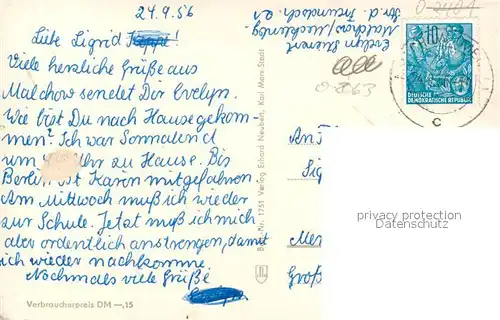 24.9.56
Liebe Sigrid
Viele herzliche Grüße aus
Malchow sendet Dir Evelyn.
Wie bist Du nach Hause gekom-
men? Ich war Sonnabend
um Uhr zu Hause. Bis
Berlin ist Karin mitgefahren.
Am Mittwoch muß ich wieder
zur Schule. Jetzt muß ich mich
aber ordentlich anstrengen, damit
ich wieder nachkomme.
Nochmals viele Grüße
Verbraucherpreis DM —,15
Best.-Nr. 1751 Verlag Erhard Neubert, Karl-Marx-Stadt
Evelyn
Malchow/Mecklenbg.
Str. d. Freundsch. 21
10
DEUTSCHE
DEMOKRATISCHE REPUBLIK
c
An
Sig
Me
Groß
privacy protection
Datenschutz